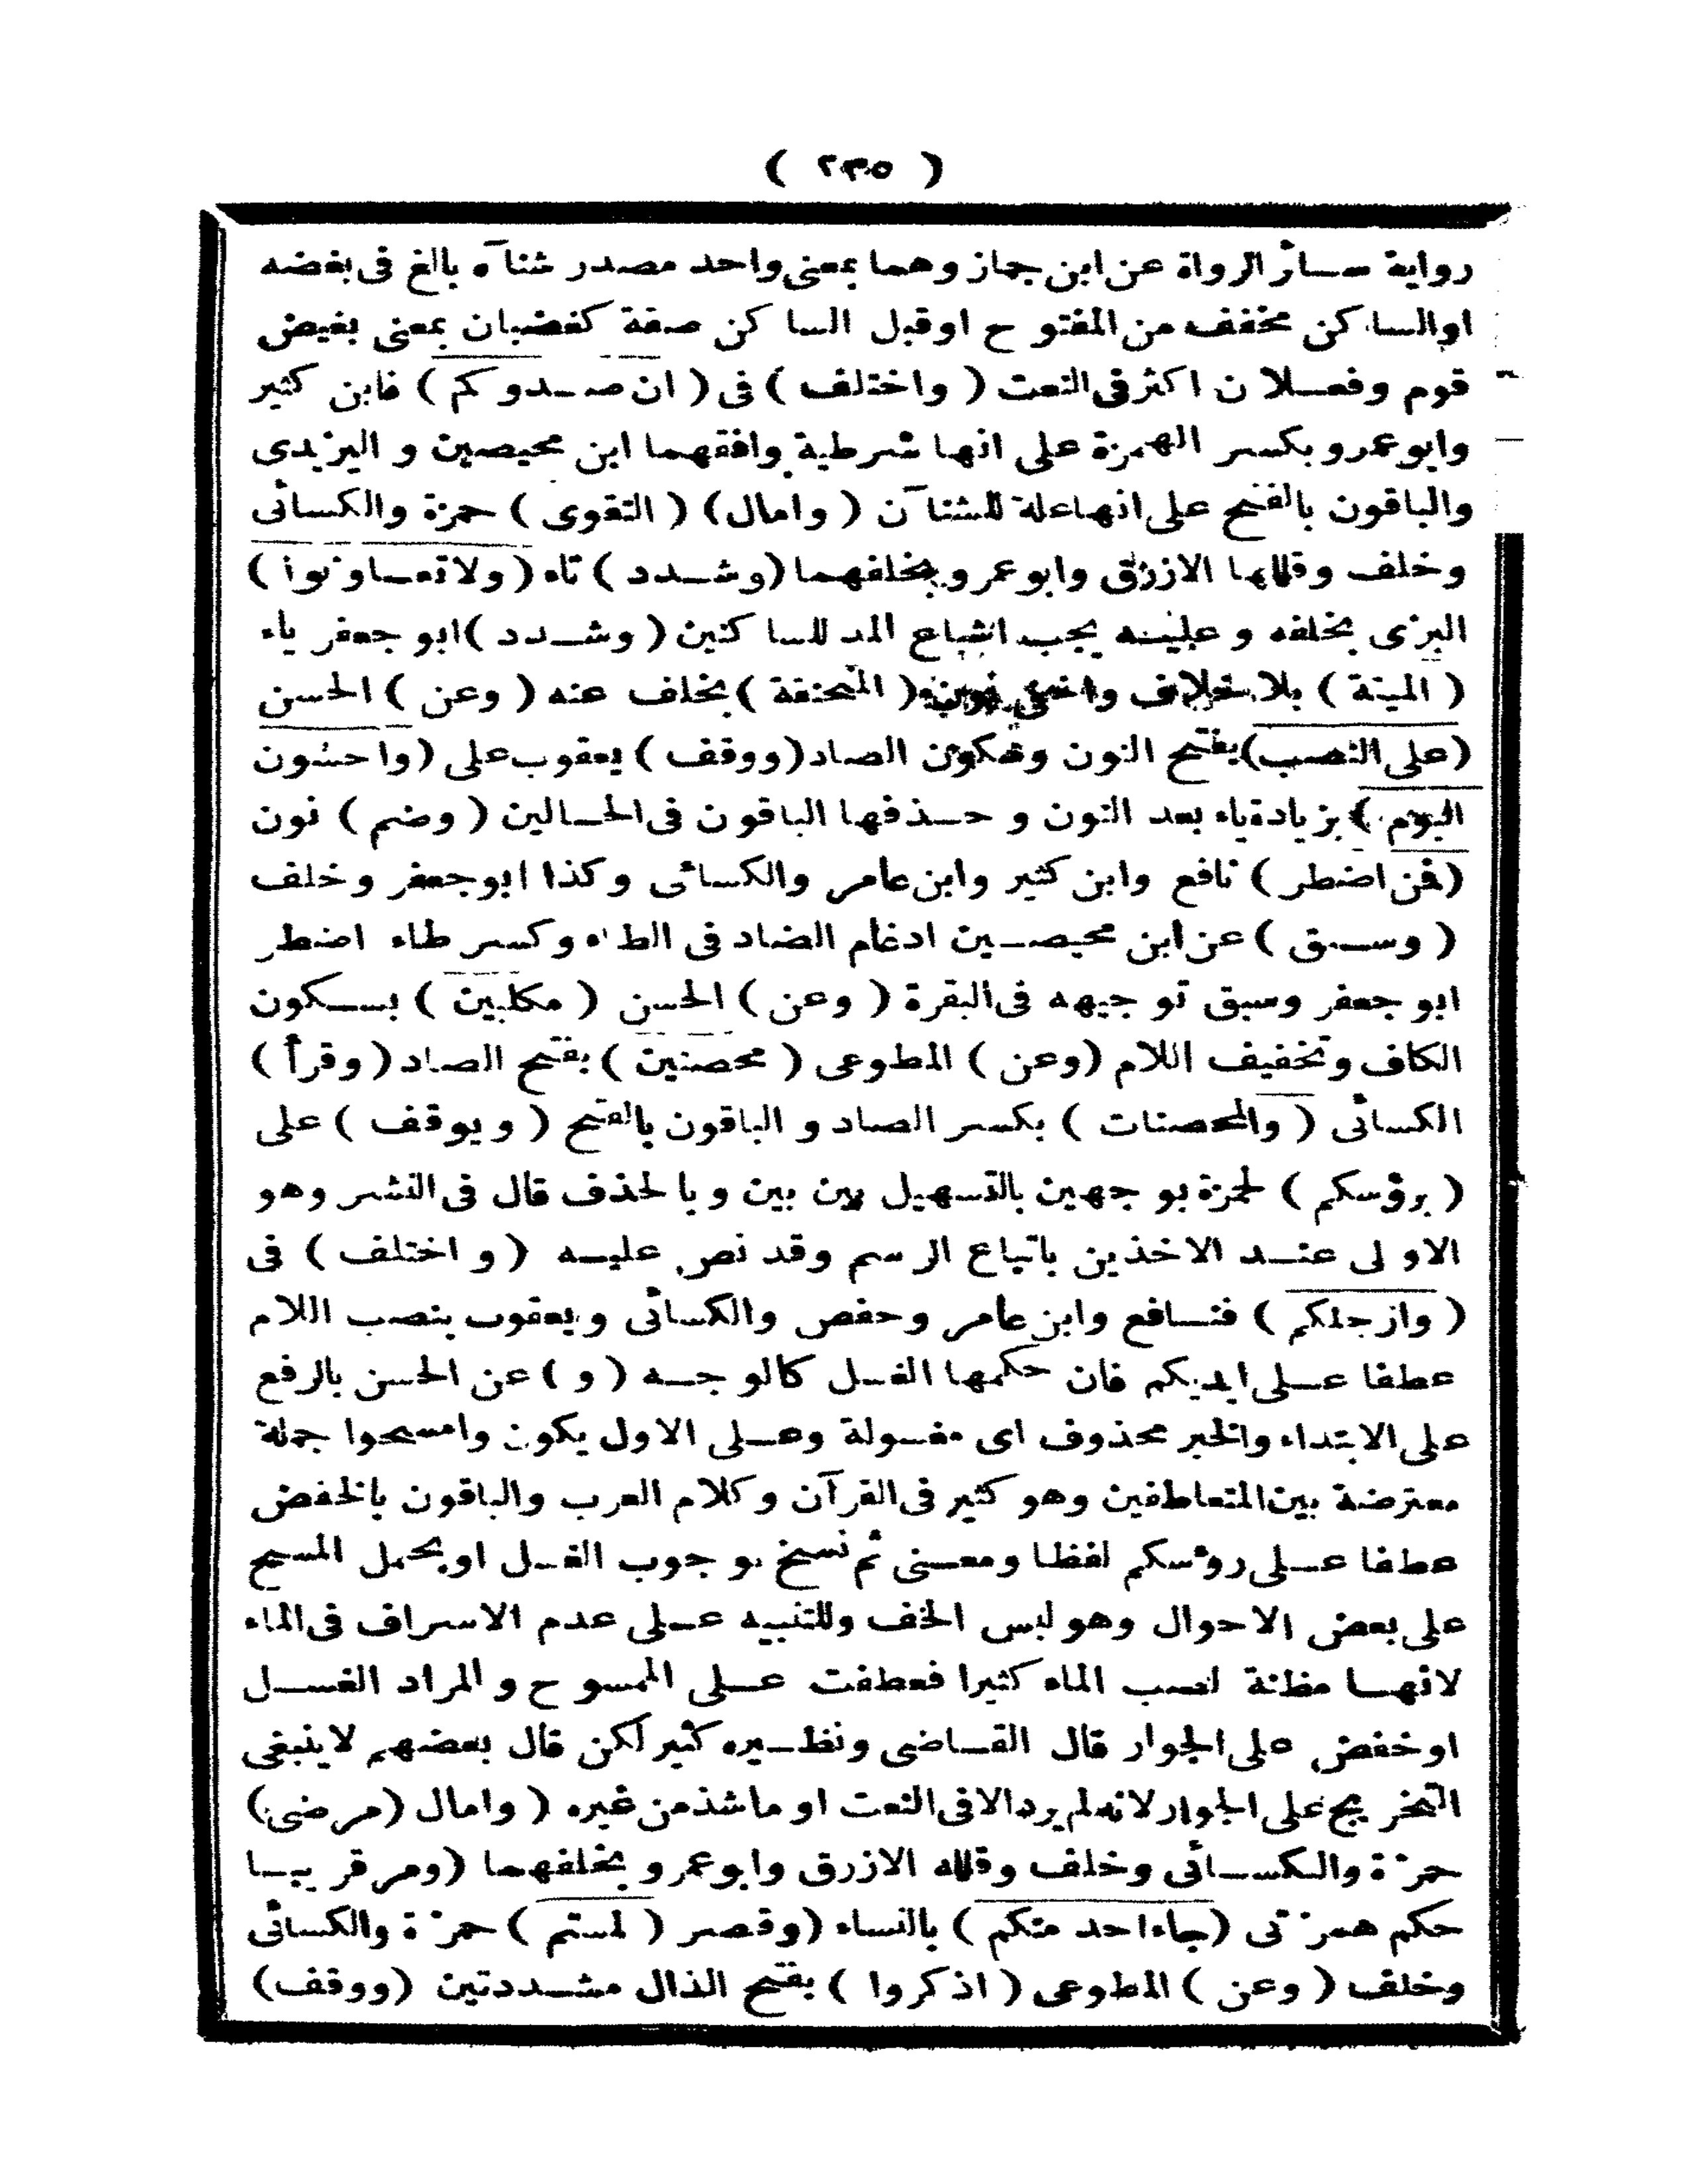 ( ٢٣٥ )
رواية سائر الرواة عن ابن جماز وهما بمعنى واحد مصدر شنآه بالغ فى بغضه
اوالساكن مخفف من المفتوح اوقبل الساكن صفة كغضبان بمعنى بغيض
قوم وفعلان اكثر فى النعت ( واختلف ) فى ( ان صدوكم ) فابن كثير
وابو عمرو بكسر الهمزة على انها شرطية وافقهما ابن محيصين و اليزيدى
والباقون بالفتح على انهاعلة للشنآن ( وامال) ( التقوى ) حمزة والكسائى
وخلف وقللها الازرق وابو عمرو بخلفهما (وشدد ) تاء ( ولا تعاونوا )
البزى بخلفه و عليه يجب اشباع المد للساكنين ( وشدد ) ابو جعفر ياء
( الميتة ) بلا خلاف واخفى نون ( المنخنقة ) بخلف عنه ( وعن ) الحسن
(على النصب) بفتح النون وسكون الصاد (ووقف ) يعقوب على (واخشون
اليوم ) بزيادة ياء بعد النون و حذفها الباقون فى الحالين ( وضم ) نون
(فمن اضطر ) نافع وابن كثير وابن عامر والكسائى وكذا ابو جعفر وخلف
( وسبق ) عن ابن محيصين ادغام الضاد فى الطاء وكسر طاء اضطر
ابو جعفر وسبق توجيهه فى البقرة ( وعن ) الحسن ( مكلبين ) بسكون
الكاف وتخفيف اللام (وعن ) المطوعى ( محصنين ) بفتح الصاد ( وقرأ )
الكسائى ( والمحصنات ) بكسر الصاد و الباقون بالفتح ( و يوقف ) على
( برؤسكم ) لحمزة بوجهين بالتسهيل بين بين و بالحذف قال فى النشر وهو
الاولى عند الاخذين باتباع الرسم وقد نص عليه ( و اختلف ) فى
( وارجلكم ) فنافع وابن عامر وحفص والكسائى و يعقوب بنصب اللام
عطفا على ايديكم فان حكمها الغسل كالوجه ( و ) عن الحسن بالرفع
على الابتداء والخبر محذوف اى مغسولة وعلى الاول يكون وامسحوا جملة
معترضة بين المتعاطفين وهو كثير فى القرآن وكلام العرب والباقون بالخفض
عطفا على روءسكم لفظا ومعنى ثم نسخ بوجوب الغسل او بحمل المسح
على بعض الاحوال وهو لبس الخف وللتنبيه على عدم الاسراف فى الماء
لانها مظنة لصب الماء كثيرا فعطفت على الممسوح و المراد الغسل
اوخفض على الجوار قال القاضى ونظيره كثير لكن قال بعضهم لا ينبغى
التخريج على الجوار لانه لم يرد الا فى النعت او ما شذ من غيره ( وامال (مرضى)
حمزة والكسائى وخلف وقلله الازرق وابو عمرو بخلفهما (ومر قريبا
حكم همزتى (جاءاحد منكم ) بالنساء (وقصر ( لمستم ) حمزة والكسائى
وخلف ( وعن ) المطوعى ( اذكروا ) بفتح الذال مشددتين (ووقف)